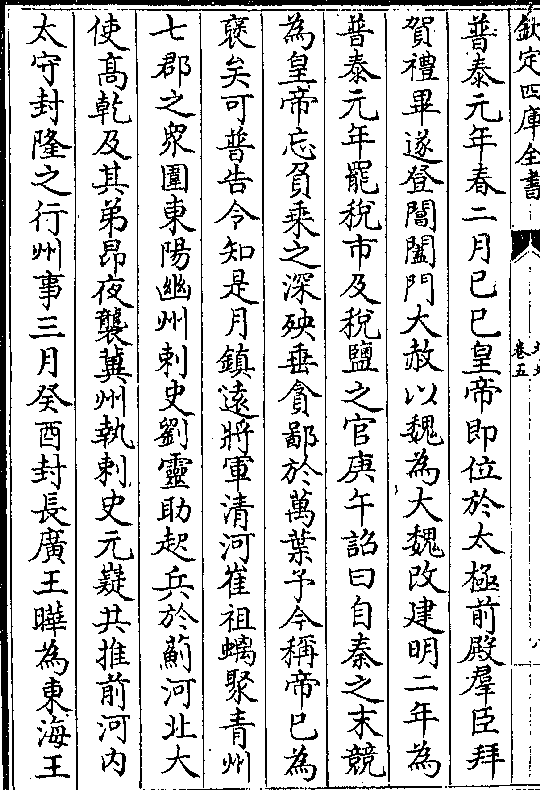 欽定四庫全書
卷五
普泰元年春二月已巳皇帝即位於太極前殿羣臣拜
賀禮畢遂登閶闔門大赦以魏為大魏改建明二年為
普泰元年罷稅市及稅鹽之官庚午詔曰自秦之末競
為皇帝忘負乘之深殃垂貪鄙於萬葉予今稱帝已為
襃矣可普告令知是月鎮遠將軍清河崔祖螭聚青州
七郡之衆圍東陽幽州刺史劉靈助起兵於薊河北大
使髙乾及其弟昂夜襲冀州執刺史元嶷共推前河内
太守封隆之行州事三月癸酉封長廣王曄為東海王